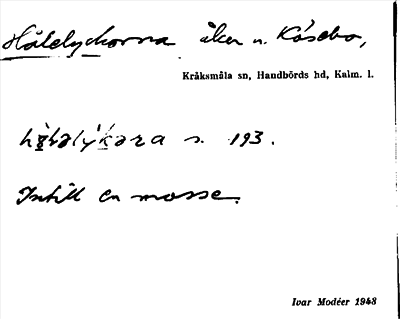 Hålelyckorna åker n. Kåsebo,
Kråksmåla sn, Handbörds hd, Kalm. l.
s. 193.
Intill en mosse.
Ivar Modéer 1943